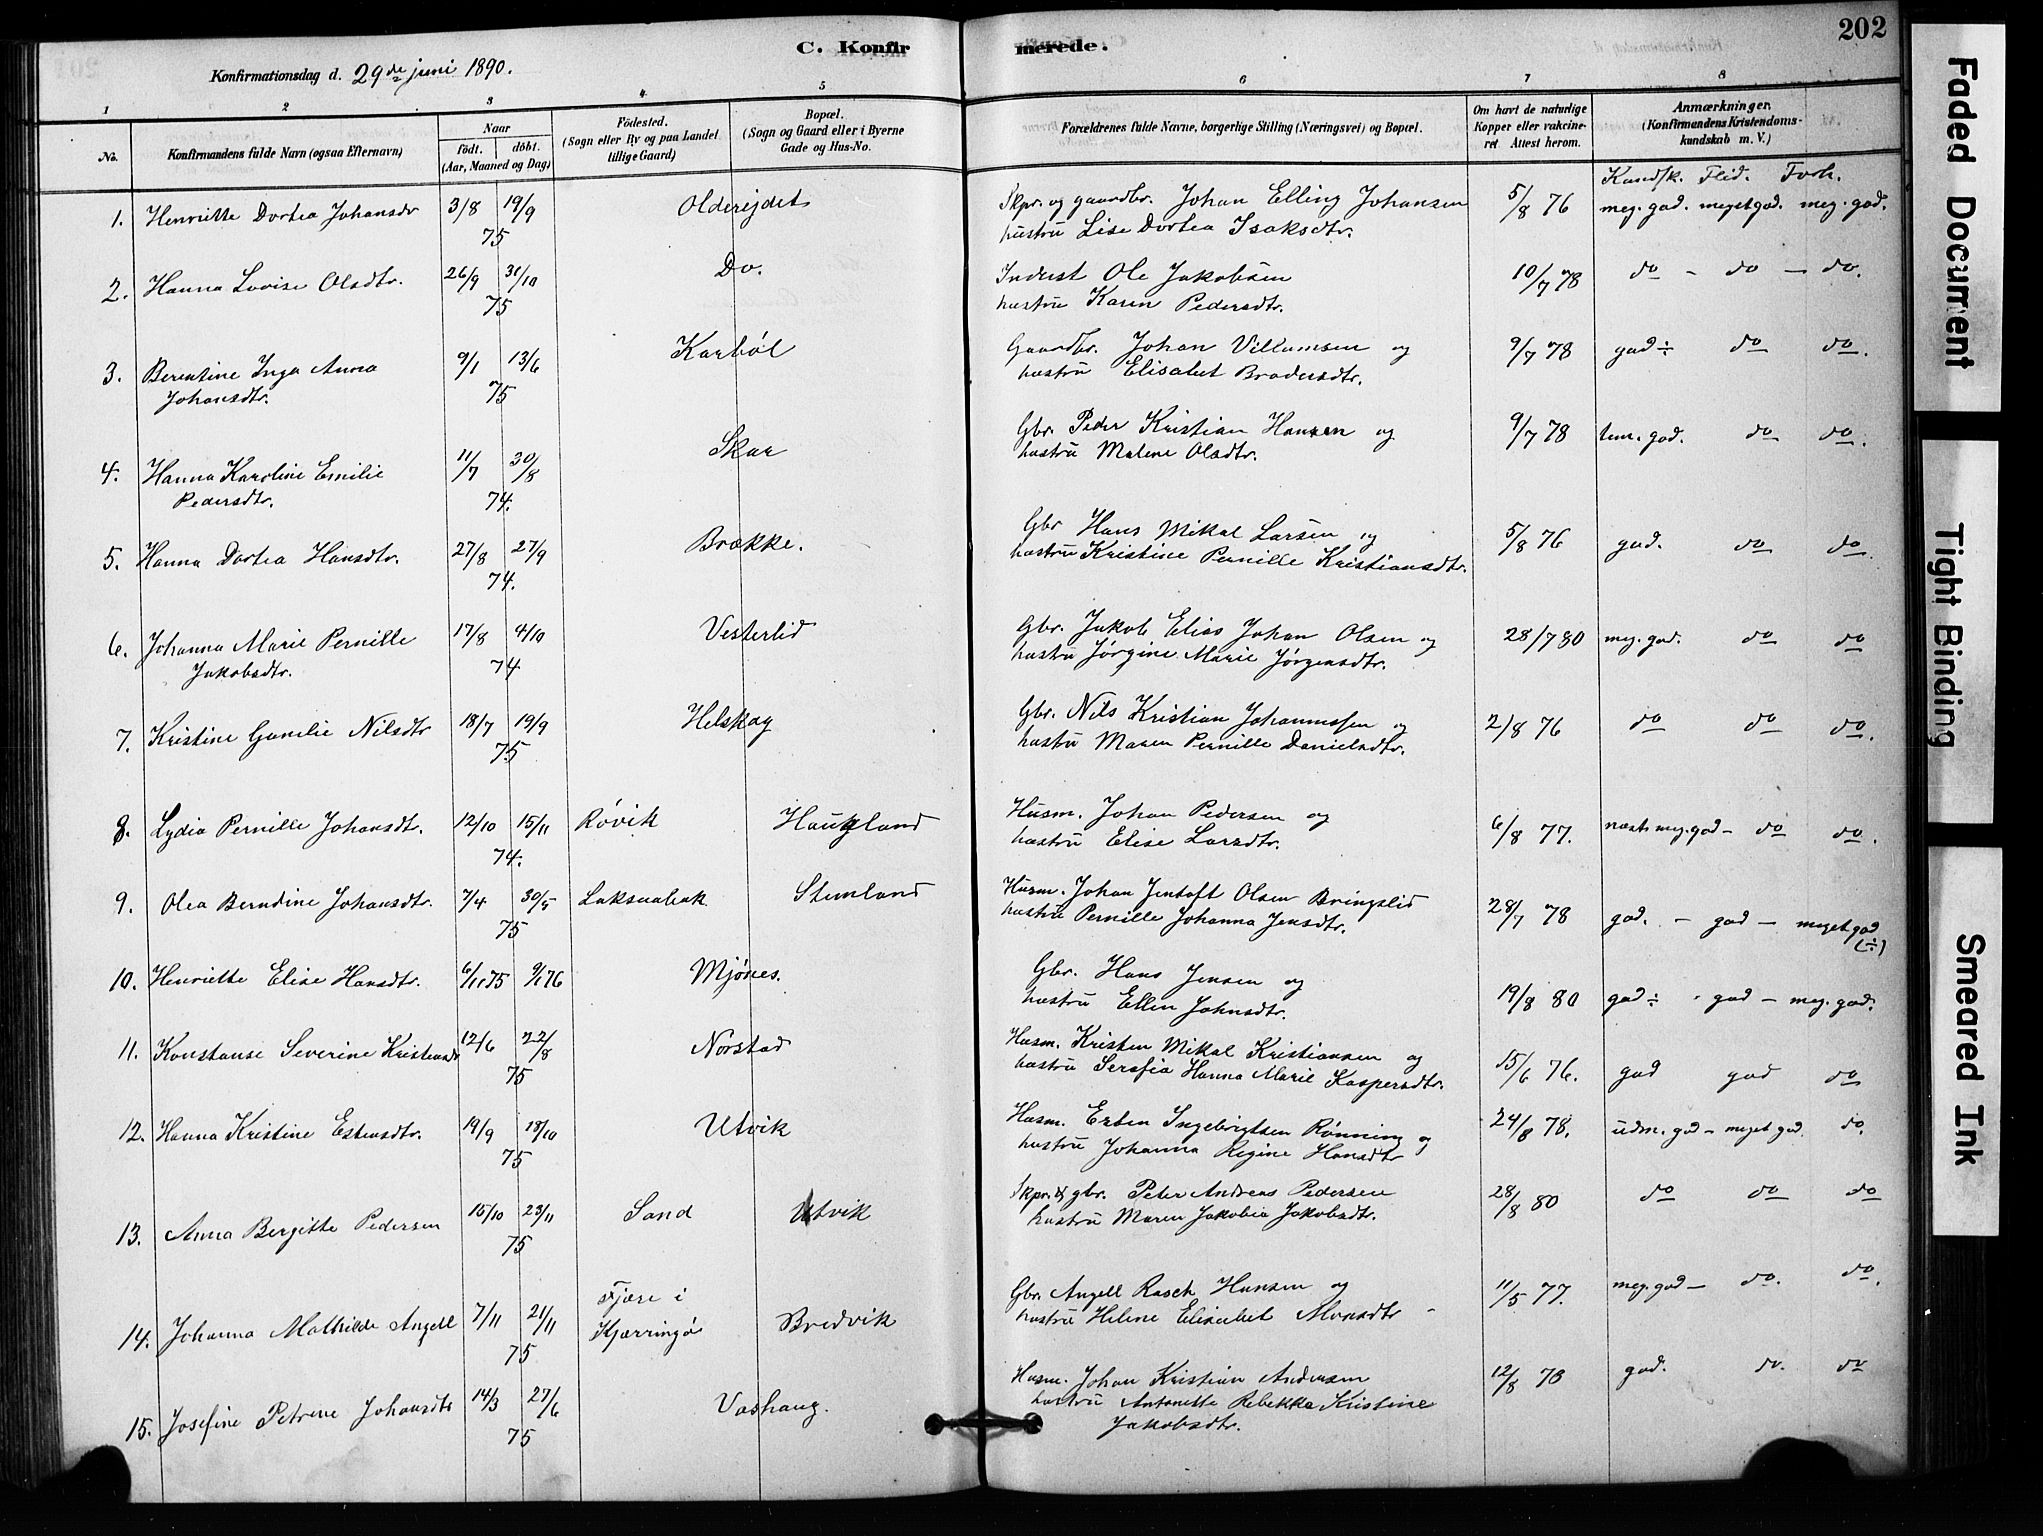 202
C. Konfirmerede.
Konfirmationsdag d. 29de juni 1890.
1 2 3 4 5 6 7 8
No. Konfirmandens fulde Navn (ogsaa Efternavn) Naar født. døbt. (Aar, Maaned og Dag) Fødested. (Sogn eller By og paa Landet tillige Gaard) Bopæl. (Sogn og Gaard eller i Byerne Gade og Hus-No. Forældrenes fulde Navne, borgerlige Stilling (Næringsvei) og Bopæl. Om havt de naturlige Kopper eller vakcineret Attest herom. Anmærkninger. (Konfirmandens Kristendomskundskab m. V.)
Kundsk. Flid. Forh.
1. Henriette Dortea Johansdr 3/8 19/9 75 Olderejdet Skpr. og gaardbr. Johan Elling Johansen 5/8 76 meg. god. meget god. meg. god.
hustru Lise Dortea Isaksdtr.
2. Hanna Lovise Olsdtr. 26/9 31/10 75 Do. Inderst Ole Jakobsen 10/7 78 do - do - do.
hustru Karen Pedersdtr.
3. Berentine Inga Anna 9/1 13/6 75 Karbøl Gaardbr. Johan Villumsen og 9/7 78 god ÷ do do.
Johansdtr. hustru Elisabet Brodersdtr.
4. Hanna Karoline Emilie 11/7 30/8 74. Skar Gbr. Peder Kristian Hansen og 9/7 78 tem. god. do do.
Pedersdtr. hustru Malene Olsdtr.
5. Hanna Dortea Hansdtr. 27/8 27/9 74. Brække. Gbr Hans Mikal Larsen og 5/8 76 god. do do.
hustru Kristine Pernille Kristiansdtr.
6. Johanna Marie Pernille 17/8 4/10 74 Vesterlid Gbr. Jakob Elias Johan Olsen og 28/7 80 meg. god. do do
Jakobsdtr. hustru Jørgine Marie Jørgensdtr.
7. Kristine Gunelie Nilsdtr 18/7 19/9 75 Helskog Gbr. Nils Kristian Johannessen og 2/8 76 do do do.
hustru Maren Pernille Danielsdtr.
8. Lydia Pernille Johansdtr. 12/10 15/11 74. Røvik Haugland Husm. Johan Pedersen og 6/8 77. næsten meg. god - do do.
hustru Elise Larsdtr.
9. Olea Berndine Johansdtr. 7/4 30/5 75 Laksaabak Stemland Husm. Johan Jentoft Olsen Bringslid 28/7 78 god. - god - meget god (÷)
hustru Pernille Johanna Jensdtr.
10. Henriette Elise Hansdtr. 6/11 75 9/1 76 Mjønes. Gbr. Hans Jensen og 19/8 80 god ÷ - god - meg. god.
hustru Ellen Johnsdtr.
11. Konstanse Severine Kristensdr 12/6 22/8 75 Norstad Husm. Kristen Mikal Kristiansen og 15/6 76. god god do
hustru Serafia Hanna Marie Kaspersdtr.
12. Hanna Kristine Estensdtr. 19/9 18/10 75 Utvik Husm. Esten Ingebrigtsen Rønning og 24/8 78. udm. god - meget god. do.
hustru Johanna Regine Hansdtr
13. Anna Bergitte Pedersen 15/10 23/11 75 Sand Utvik Skpr. & gbr. Peter Andreas Pedersen 28/8 80 do do do
hustru Maren Jakobia Jakobsdtr.
14. Johanna Mathilde Angell 7/11 21/11 75 Fjære i Kjærringø Bredvik Gbr. Angell Rasch Hansen og 11/5 77. meg. god - do. do.
hustru Helene Elisabet Monsdtr -
15. Josefine Petrine Johansdtr 14/3 27/6 75 Vashaug. Husm. Johan Kristian Andersen 12/8 78 god. do. do
hustru Antonette Rebekka Kristine
Jakobsdtr.
Faded Document
Tight Binding
Smeared Ink